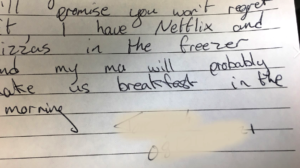 ill promise you won't regret
it, I have Netflix and
izzas in the freezer
nd my ma will probably
ake us breakfast in the
morning